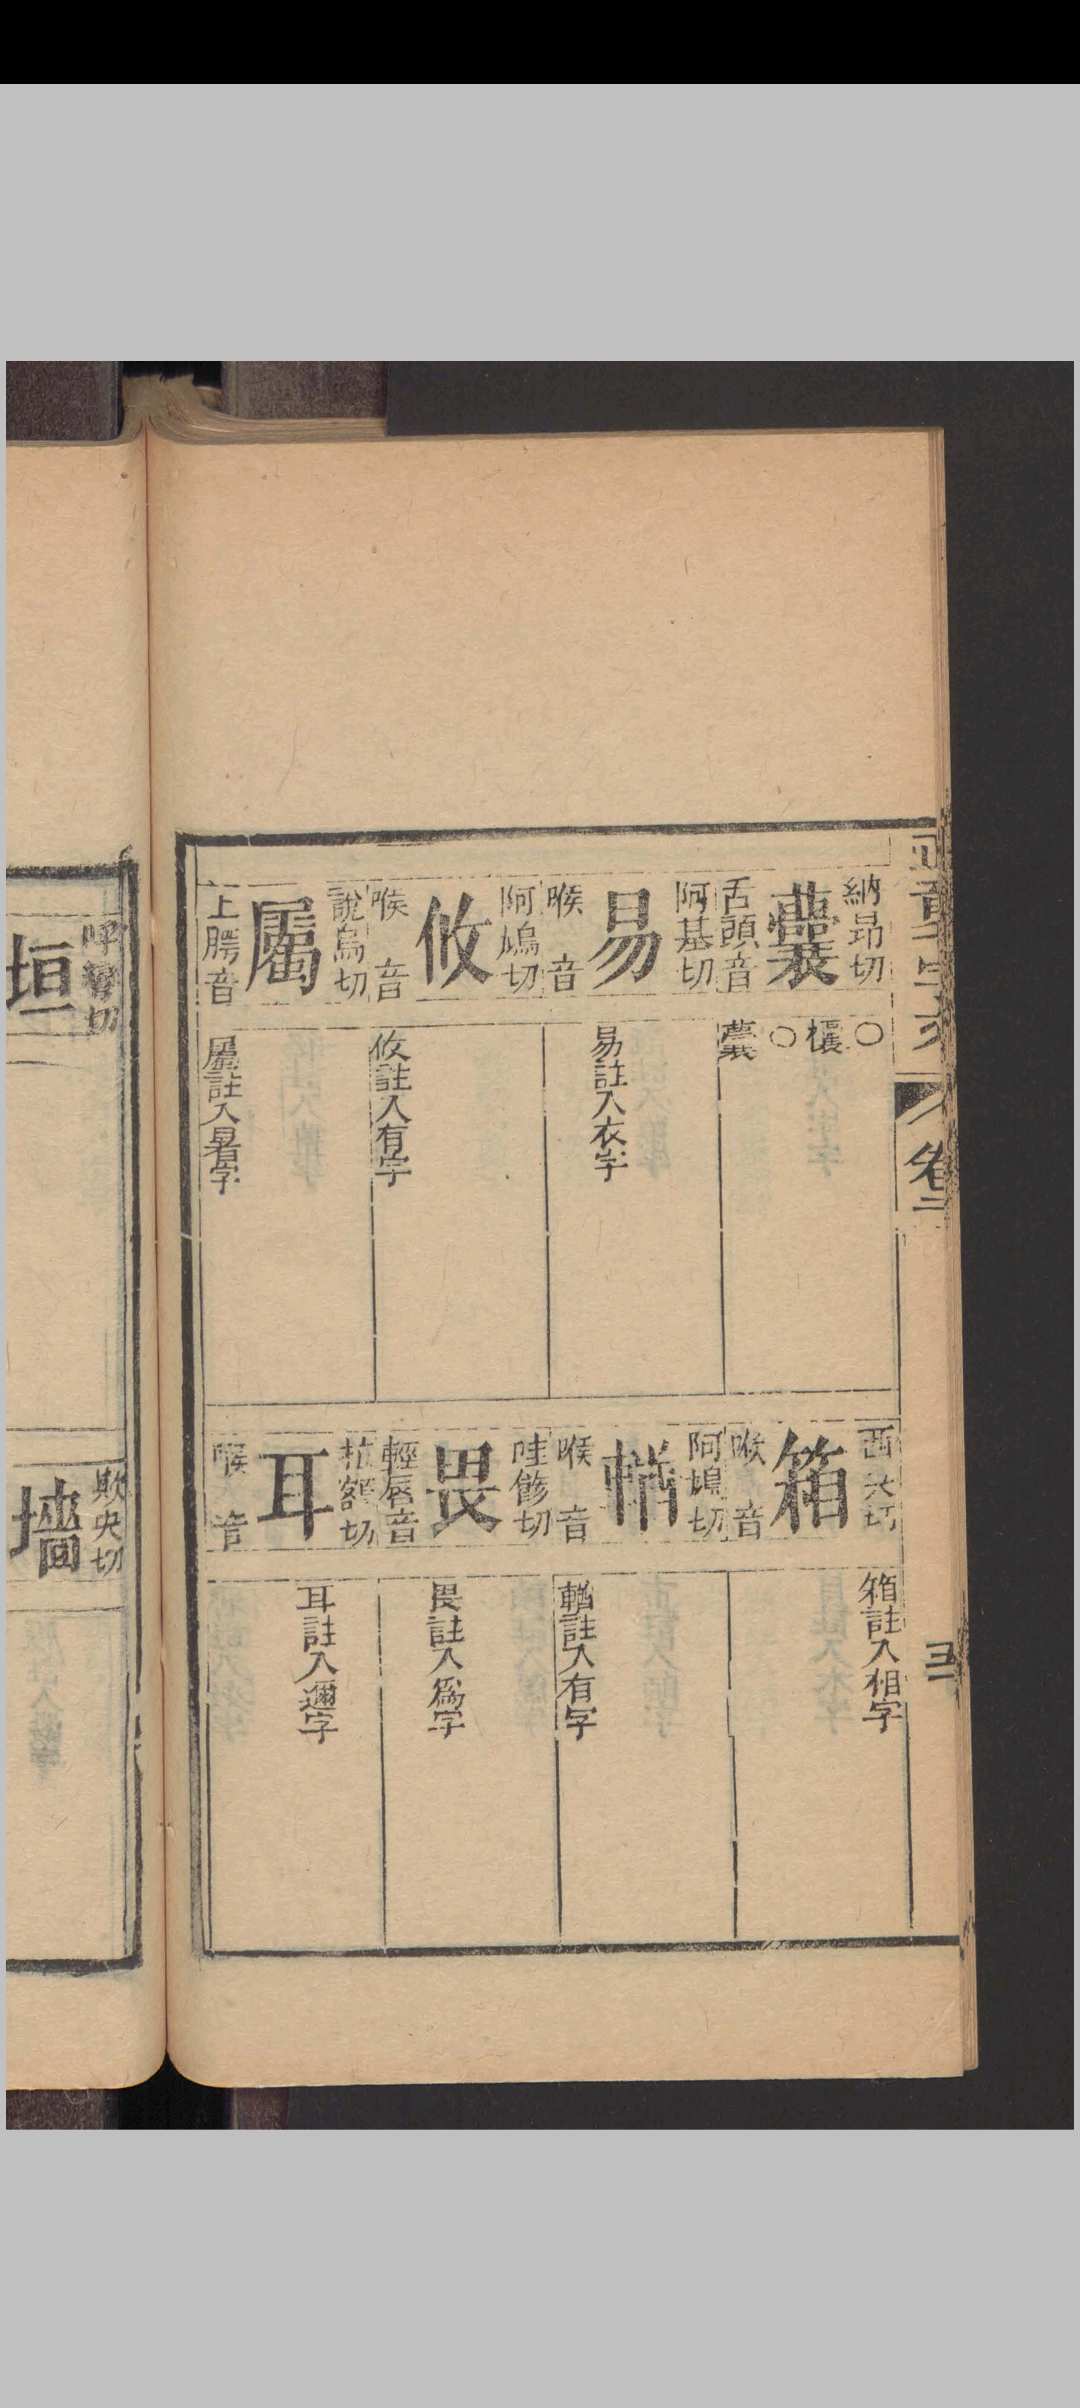 卷二
五
納昂切
囊
舌頭音
○欜
○囊
阿基切
易
喉音
易註入衣字
阿鳩切
攸
喉音
攸註入有字
說烏切
屬
上腭音
屬註入暑字
箱
喉音
箱註入相字
阿鳩切
輶
喉音
輶註入有字
哇餙切
畏
輕唇音
畏註入爲字
拉額切
耳
喉音
耳註入邇字
垣
欺央切
墻